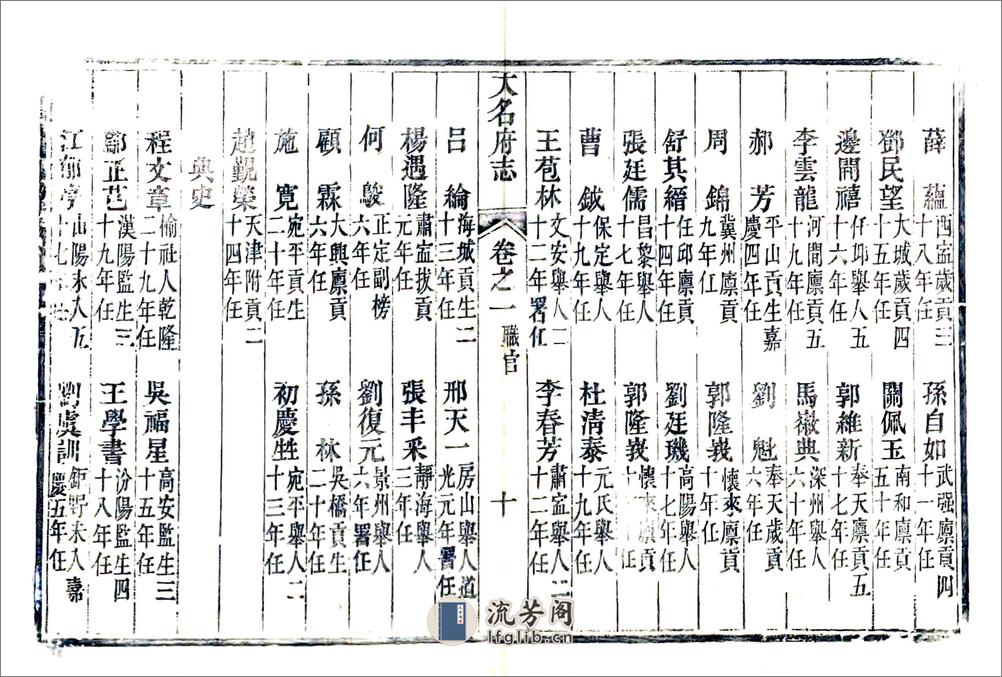 薛蘊 西寧歲貢三十八年任 孫自如 武强廪貢四十一年任
鄧民望 大城歲貢四十五年任 關佩玉 南和廪貢五十年任
邊開禧 任邱舉人五十六年任 郭維新 奉天廪貢五十七年任
李雲龍 河間廪貢五十九年任 馬徽典 深州舉人六十年任
郝芳 平山貢生嘉慶四年任 劉魁 奉天歲貢六年任
周錦 冀州廪貢九年任 郭隆峩 懷來廪貢十年任
舒其縉 任邱廪貢十四年任 劉廷璣 高陽舉人十六年任
張廷儒 昌黎舉人十七年任 郭隆峩 懷來廪貢十年任
曹鉞 保定舉人十九年任 杜清泰 元氏舉人十九年任
王苞林 文安舉人二十二年署任 李春芳 肅寧舉人二十二年任
大名府志 卷之一 職官 十
呂綸 海城貢生二十三年任 邢天一 房山舉人道光元年署任
楊遇隆 肅寧拔貢元年任 張丰釆 靜海舉人三年任
何駿 正定副榜六年任 劉復元 景州舉人六年署任
顧霖 大興廪貢六年任 孫林 吳橋貢生二十年任
施寛 宛平貢生二十二年任 初慶甡 宛平舉人二十三年任
趙觀榮 天津附貢二十四年任
典史
程文章 榆社人乾隆二十九年任 吳福星 高安監生三十五年任
鄒正芑 漢陽監生三十九年任 王學書 汾陽監生四十八年任
江郁亭 山陽未入五十七年任 劉虞訓 鉅野未入嘉慶五年任
流芳阁
lfglib.cn